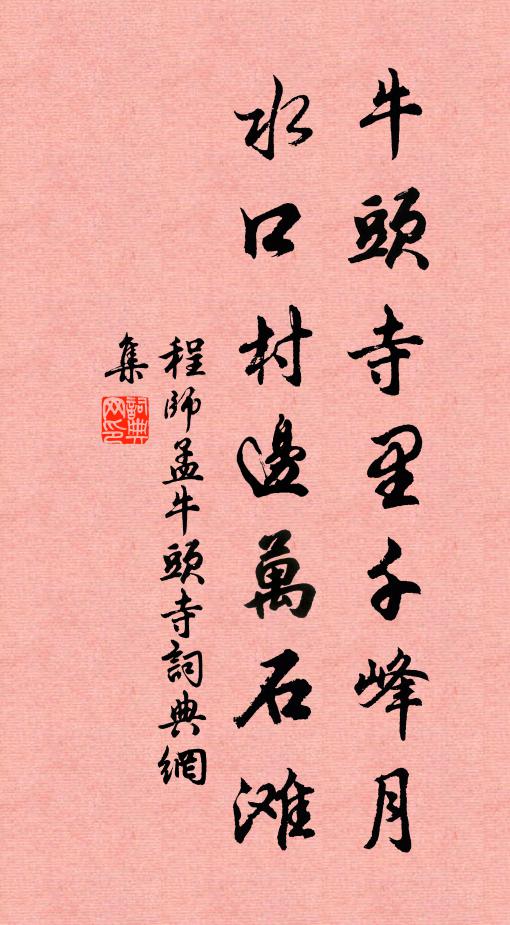 牛頭寺里千峰月
水口村邊萬石滩
程師孟牛頭寺詞典網
集
詞典
网印